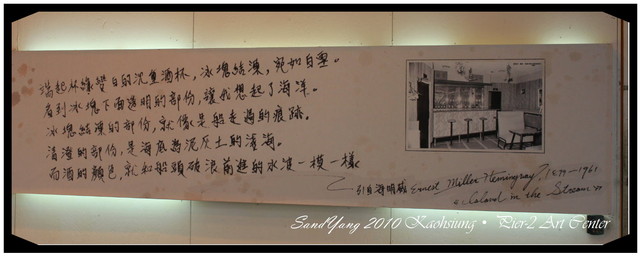 端起杯緣變白的沉重酒杯，冰塊結凍，宛如白雪。
看到冰塊下面透明的部份，讓我想起了海洋。
冰塊結凍的部份，就像是船走過的痕跡。
清澄的部份，是海底為泥灰土的淺海。
而酒的顏色，就和船頭破浪前進的水波一模一樣
引自海明威 Ernest Miller Hemingway, 1899-1961
Island in the Stream
SandYang 2010 Kaohsiung • Pier-2 Art Center